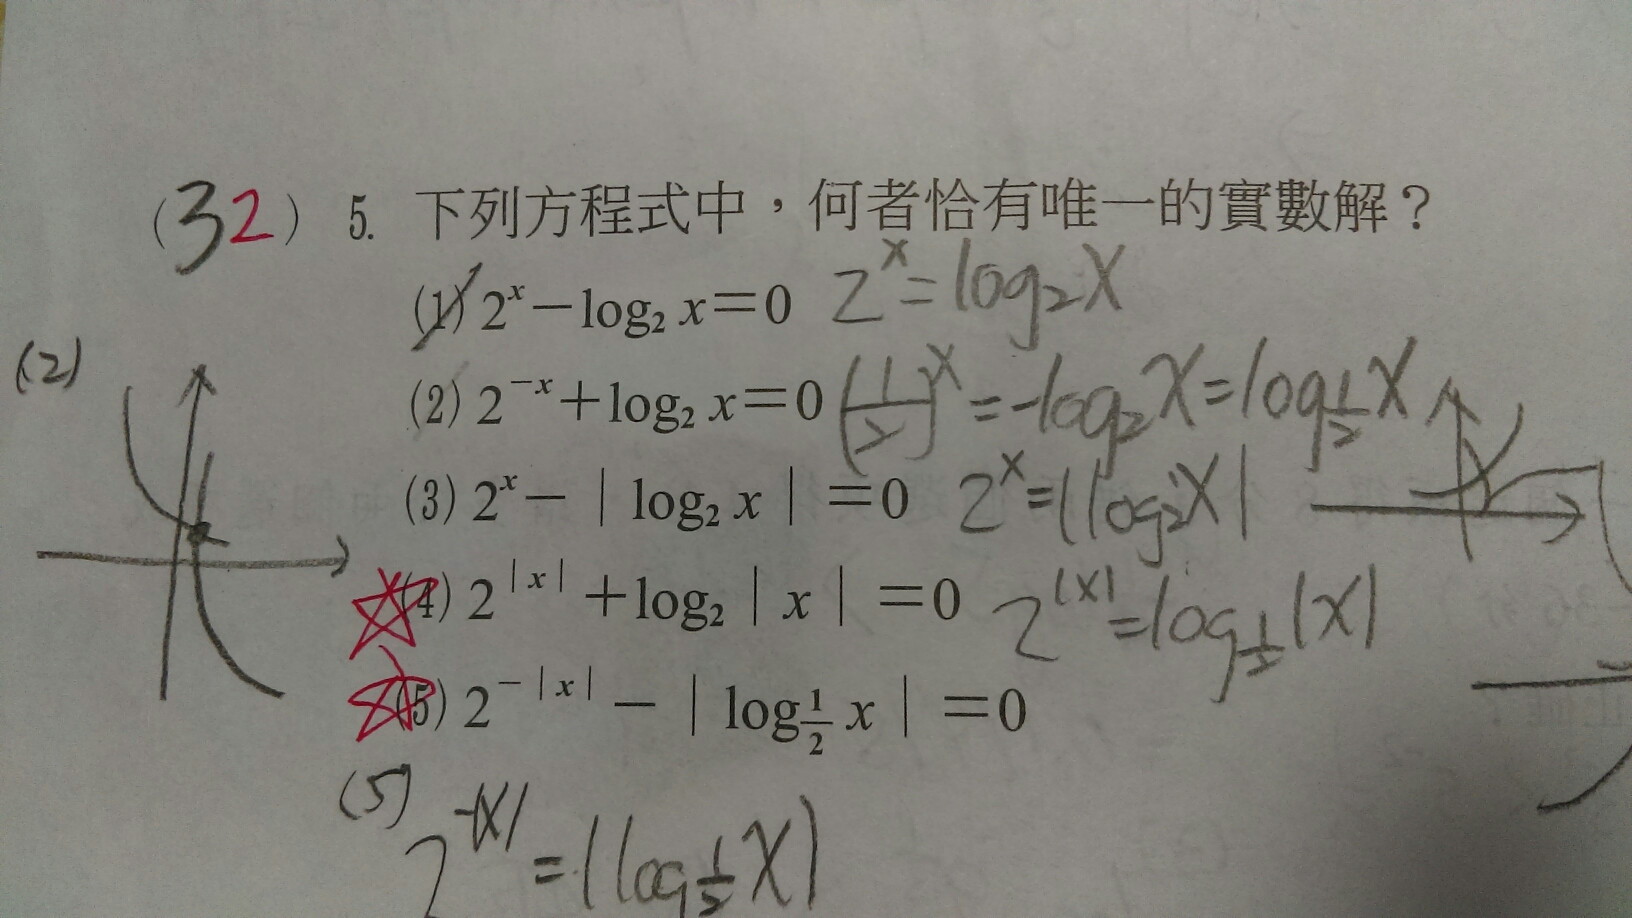 (32) 5. 下列方程式中，何者恰有唯一的實數解？
(1) 2^x－log₂ x＝0 2^x=log₂X
(2)
(2) 2^－x＋log₂ x＝0 (1/2)^X=-log₂X=log_1/2 X
(3) 2^x－｜log₂ x｜＝0 2^X=|log₂X|
(4) 2^｜x｜＋log₂｜x｜＝0 2^|X|=log_1/2 |X|
(5) 2^－｜x｜－｜log_1/2 x｜＝0
(5) 2^-|X|=|log_1/2 X|